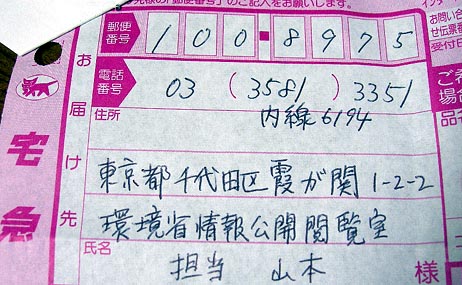 先様の「郵便番号」のご記入をお願いします。
郵便番号 100-8975
電話番号 03 (3581) 3351
内線 6194
住所
東京都千代田区霞が関 1-2-2
環境省情報公開閲覧室
氏名
担当 山本 様
お届け先
宅急
お問い
せ伝票
受付日